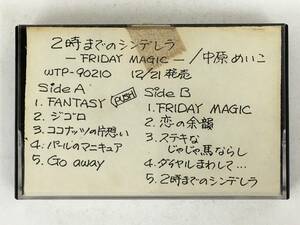 2時までのシンデレラ
— FRIDAY MAGIC — / 中原めいこ
WTP-90210 12/21発売
Side A
1. FANTASY PUSH
2. ジゴロ
3. ココナッツの片想い
4. パールのマニキュア
5. Go away
Side B
1. FRIDAY MAGIC
2. 恋の余韻
3. ステキな
じゃじゃ馬ならし
4. ダイヤルまわして…
5. 2時までのシンデレラ